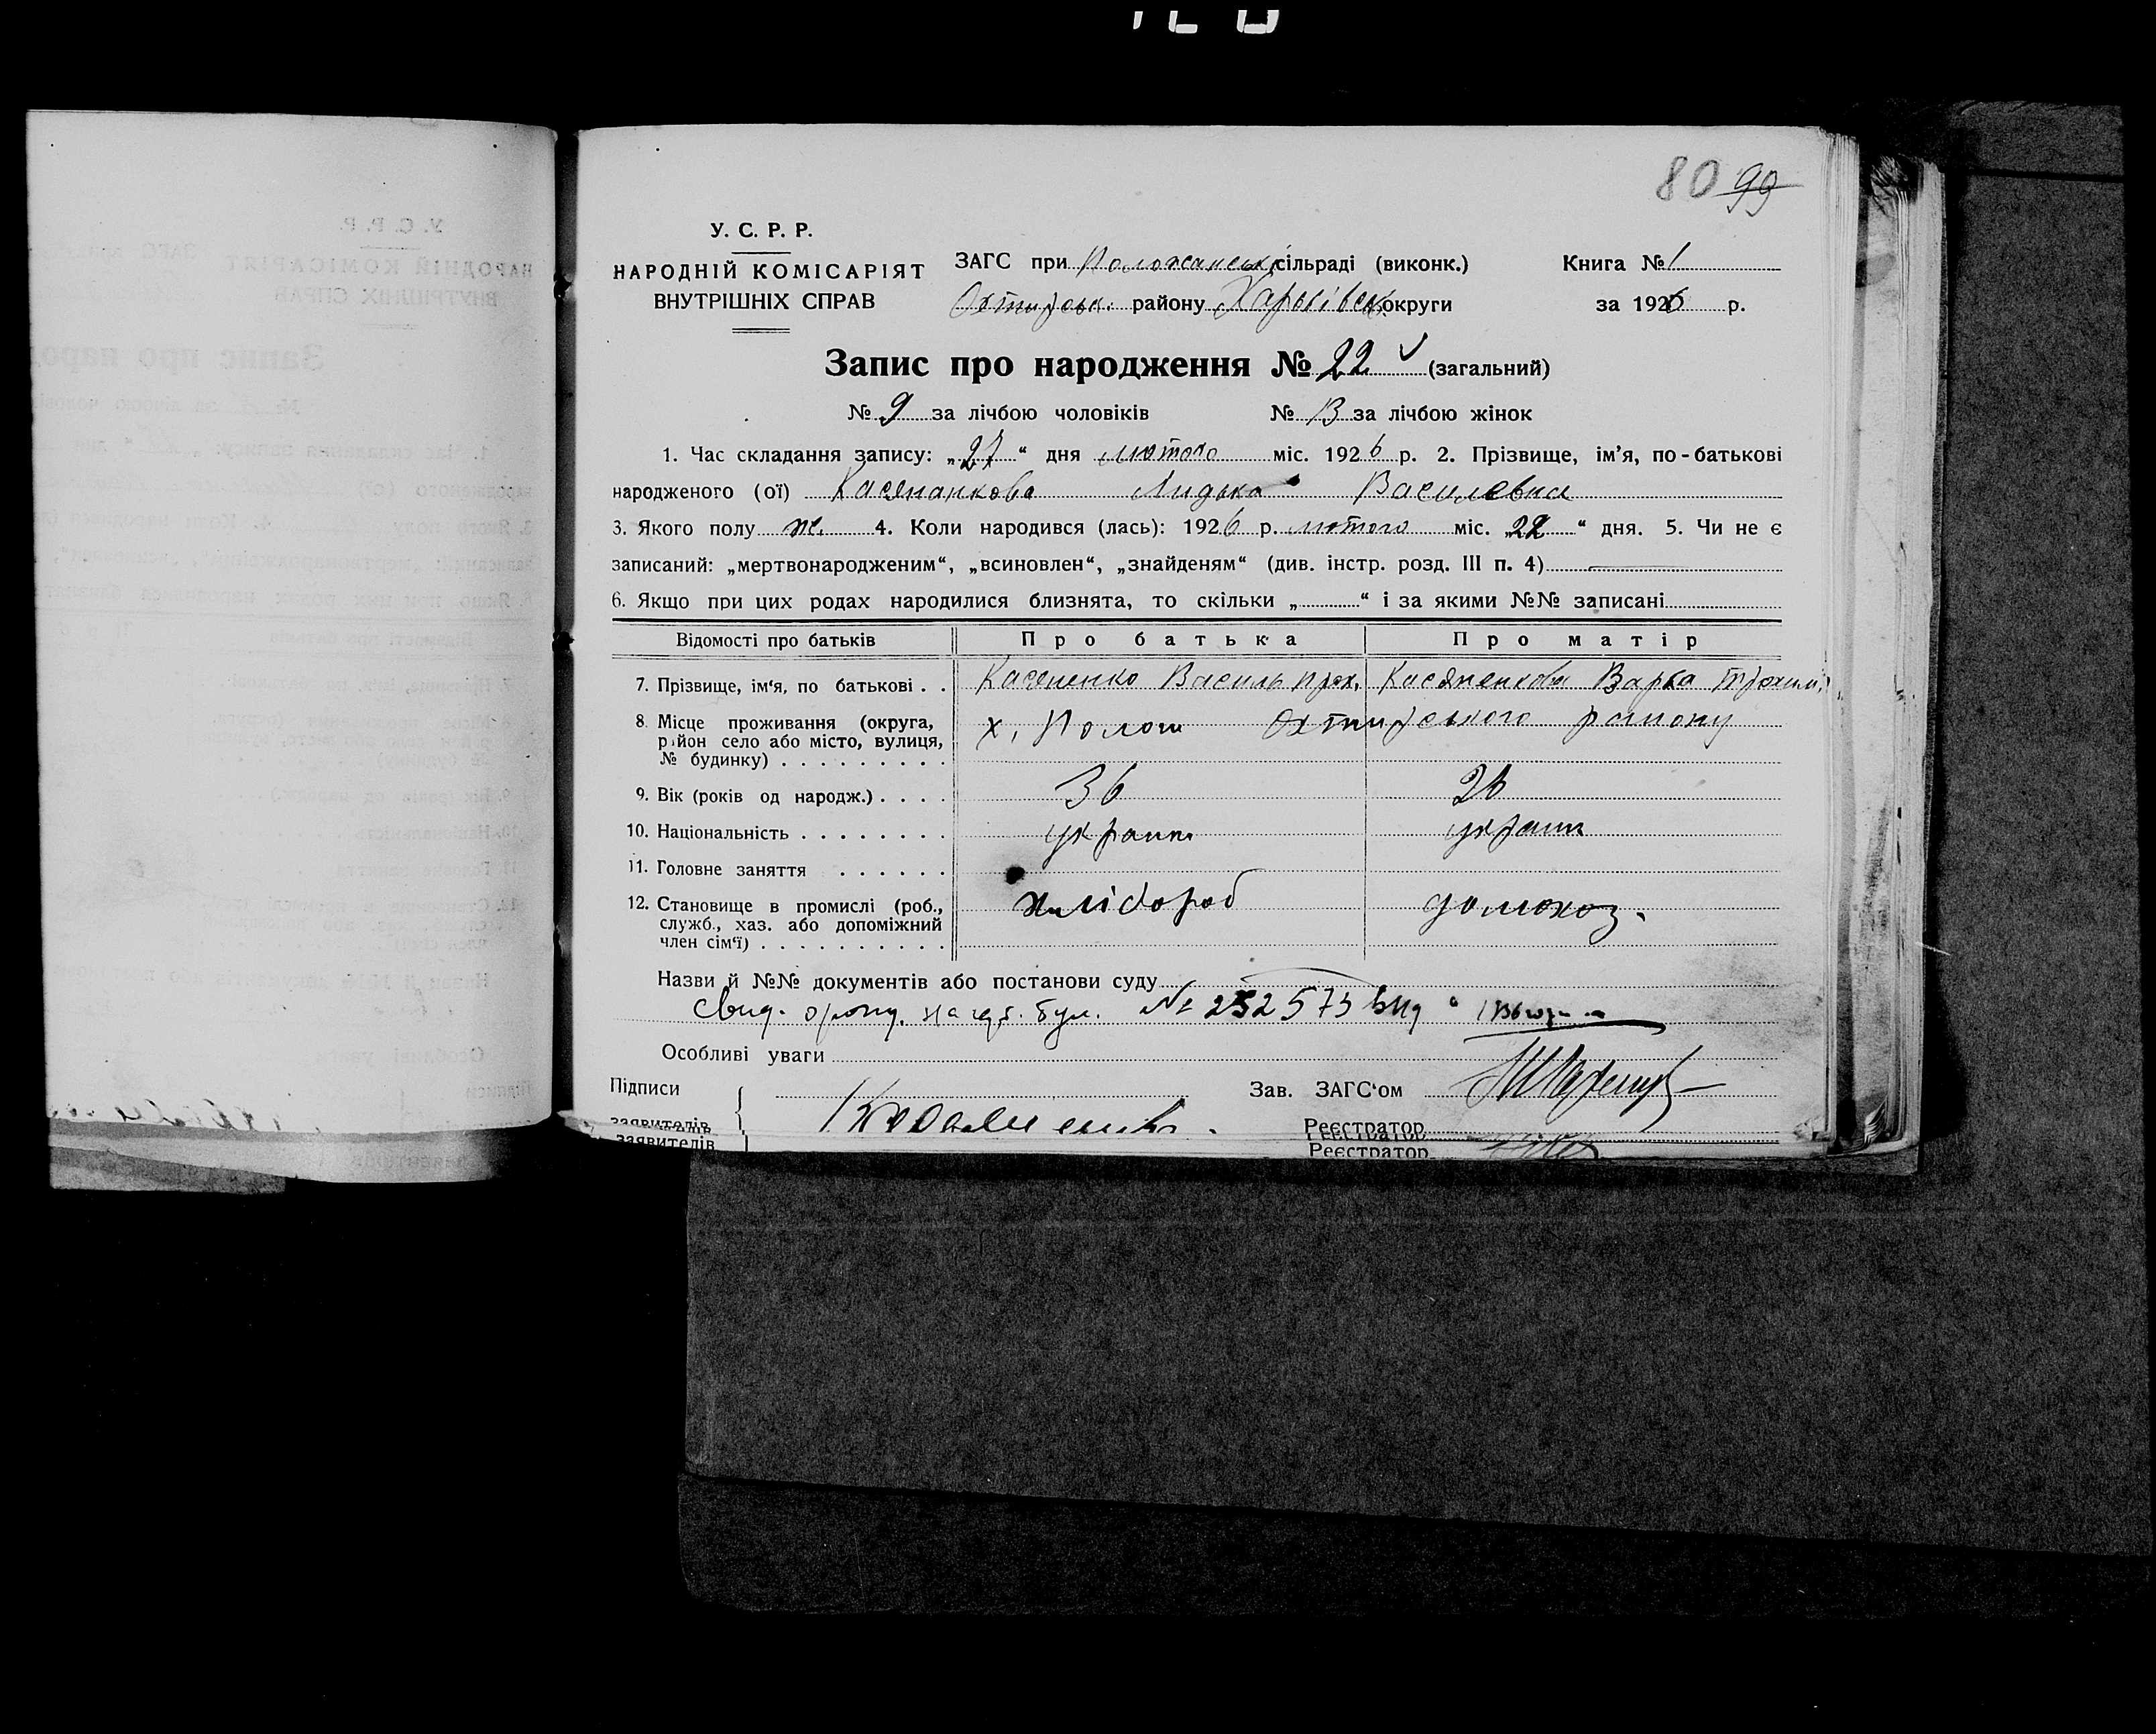 80 99
У. С. Р. Р.
НАРОДНІЙ КОМІСАРІЯТ
ВНУТРІШНІХ СПРАВ
ЗАГС при Положанськ. сільраді (виконк.)
Охтирськ. району Харьківськ округи
Книга № 1
за 1926 р.
Запис про народження № 22 (загальний)
№ 9 за лічбою чоловіків № 13 за лічбою жінок
1. Час складання запису: „27“ дня лютого міс. 1926 р. 2. Прізвище, ім'я, по-батькові
народженого (ої) Касянанкова Лидька Василевна
3. Якого полу ж. 4. Коли народився (лась): 1926 р. лютого міс. „22“ дня. 5. Чи не є
записаний: „мертвонародженим“, „всиновлен“, „знайденям“ (див. інстр. розд. III п. 4)
6. Якщо при цих родах народилися близнята, то скільки „ “ і за якими №№ записані
Відомості про батьків Про батька Про матір
7. Прізвище, ім'я, по батькові . . Касяненко Василь прох. Касяненкова Варка трохим.
8. Місце проживання (округа, х. Полош Охтирського району
район село або місто, вулиця,
№ будинку) . . . . . . . . .
9. Вік (років од народж.) . . . . 36 26
10. Національність . . . . . . . . украин украин
11. Головне заняття . . . . . .
12. Становище в промислі (роб., хлібороб домохоз.
служб., хаз. або допоміжний
член сім'ї) . . . . . . . . . .
Назви й №№ документів або постанови суду
Свид. № 252573
Особливі уваги
Підписи
Зав. ЗАГС'ом
заявителів
Реєстратор
заявителів
Реєстратор